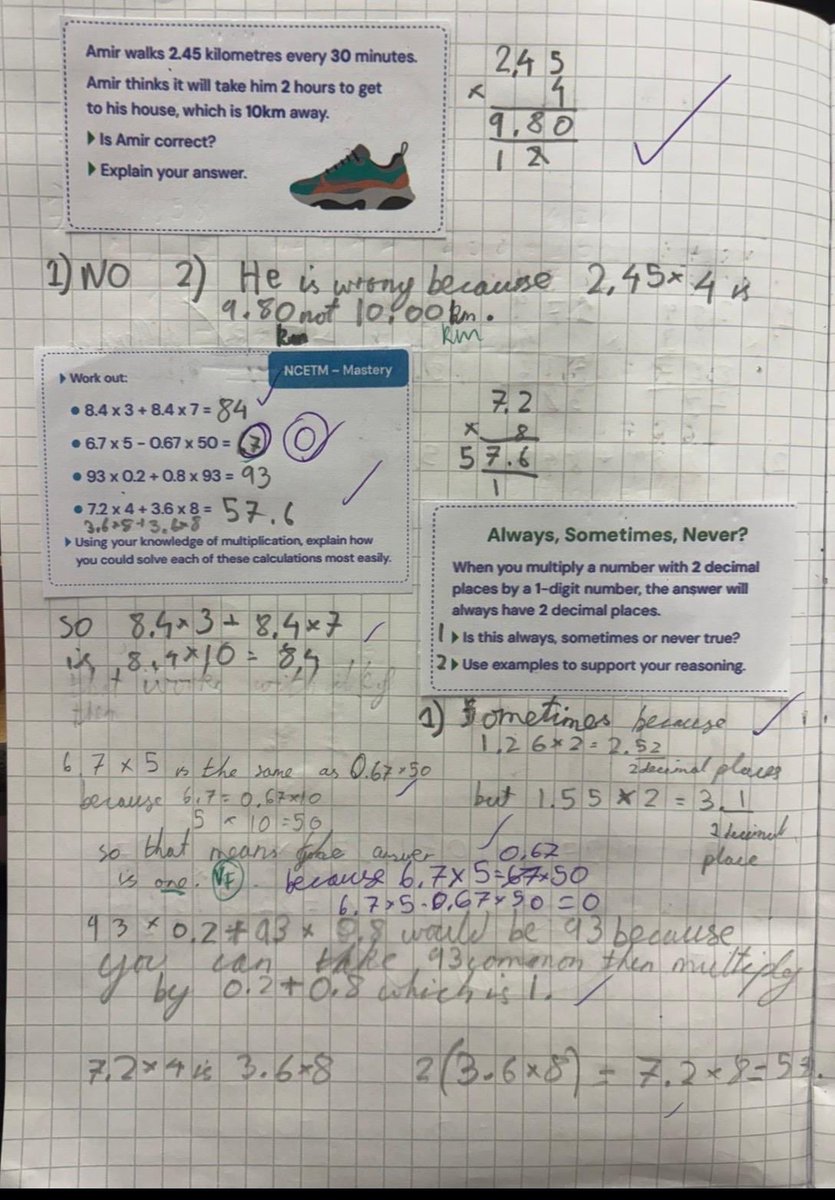 Amir walks 2.45 kilometres every 30 minutes.
Amir thinks it will take him 2 hours to get
to his house, which is 10km away.
Is Amir correct?
Explain your answer.
2,45
× 4
9.80
1 2
1) NO 2) He is wrong because 2,45× 4 is
9.80 not 10.00 km.
km km
NCETM – Mastery
Work out:
• 8.4 x 3 + 8.4 x 7 = 84
• 6.7 x 5 – 0.67 x 50 = 0
• 93 x 0.2 + 0.8 x 93 = 93
• 7.2 x 4 + 3.6 x 8 = 57.6
3.6×8+3.6×8
Using your knowledge of multiplication, explain how
you could solve each of these calculations most easily.
7.2
× 8
57.6
1
Always, Sometimes, Never?
When you multiply a number with 2 decimal
places by a 1-digit number, the answer will
always have 2 decimal places.
1 Is this always, sometimes or never true?
2 Use examples to support your reasoning.
so 8.4×3 + 8.4×7
is 8.4×10 = 84
1) Sometimes because
1.26×2 = 2.52
2 decimal places
but 1.55 × 2 = 3.1
decimal
place
6.7 × 5 is the same as 0.67×50
because 6.7 = 0.67×10
5 × 10 = 50
so that means the answer
is one. VF. because 6.7×5=0.67×50
6.7×5-0.67×50 = 0
93 × 0.2 + 93 × 0.8 would be 93 because
you can take 93 common then multiply
by 0.2 + 0.8 which is 1.
7.2×4 is 3.6×8 2(3.6×8) = 7.2×8=57.